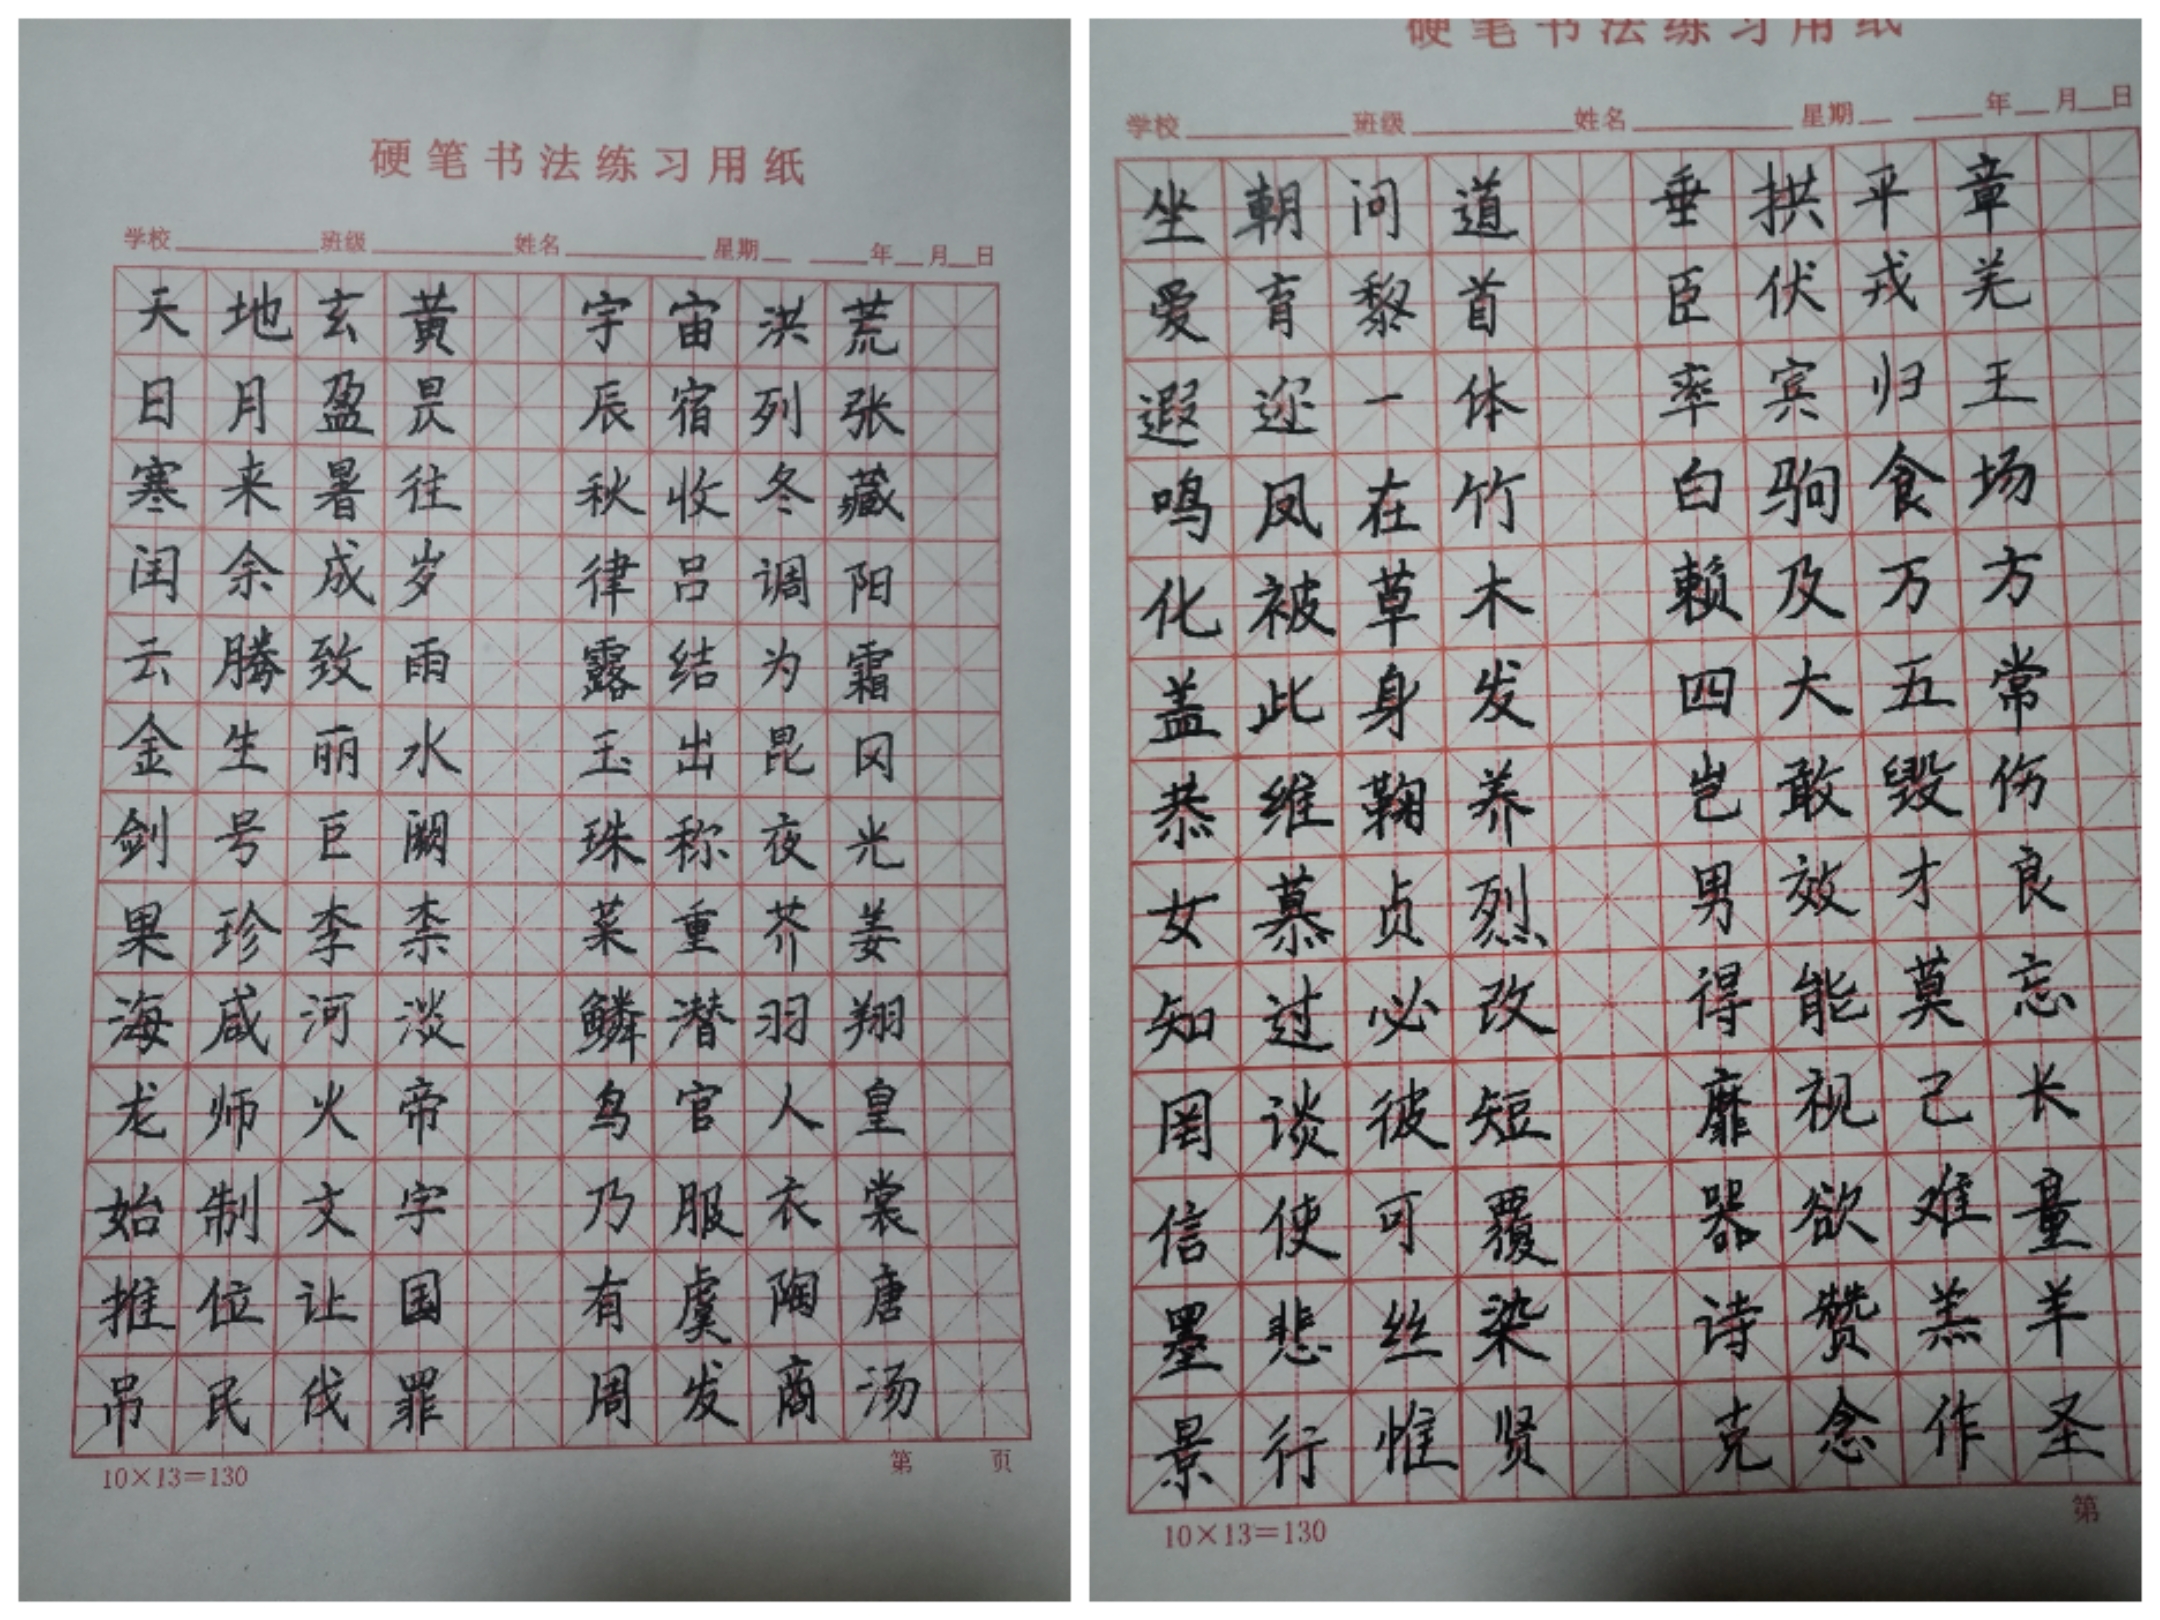 硬笔书法练习用纸
学校 班级 姓名 星期 年 月 日
天地玄黄 宇宙洪荒
日月盈昃 辰宿列张
寒来暑往 秋收冬藏
闰余成岁 律吕调阳
云腾致雨 露结为霜
金生丽水 玉出昆冈
剑号巨阙 珠称夜光
果珍李柰 菜重芥姜
海咸河淡 鳞潜羽翔
龙师火帝 鸟官人皇
始制文字 乃服衣裳
推位让国 有虞陶唐
吊民伐罪 周发商汤
10×13=130 第 页
硬笔书法练习用纸
学校 班级 姓名 星期 年 月 日
坐朝问道 垂拱平章
爱育黎首 臣伏戎羌
遐迩一体 率宾归王
鸣凤在竹 白驹食场
化被草木 赖及万方
盖此身发 四大五常
恭维鞠养 岂敢毁伤
女慕贞烈 男效才良
知过必改 得能莫忘
罔谈彼短 靡视己长
信使可覆 器欲难量
墨悲丝染 诗赞羔羊
景行惟贤 克念作圣
10×13=130 第